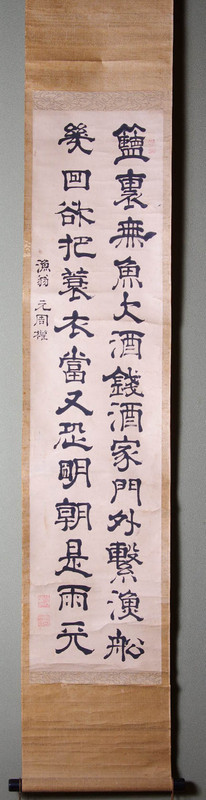 籃裏無魚欠酒錢酒家門外繫漁舩
幾回欲把蓑衣當又恐明朝是雨天
漁翁